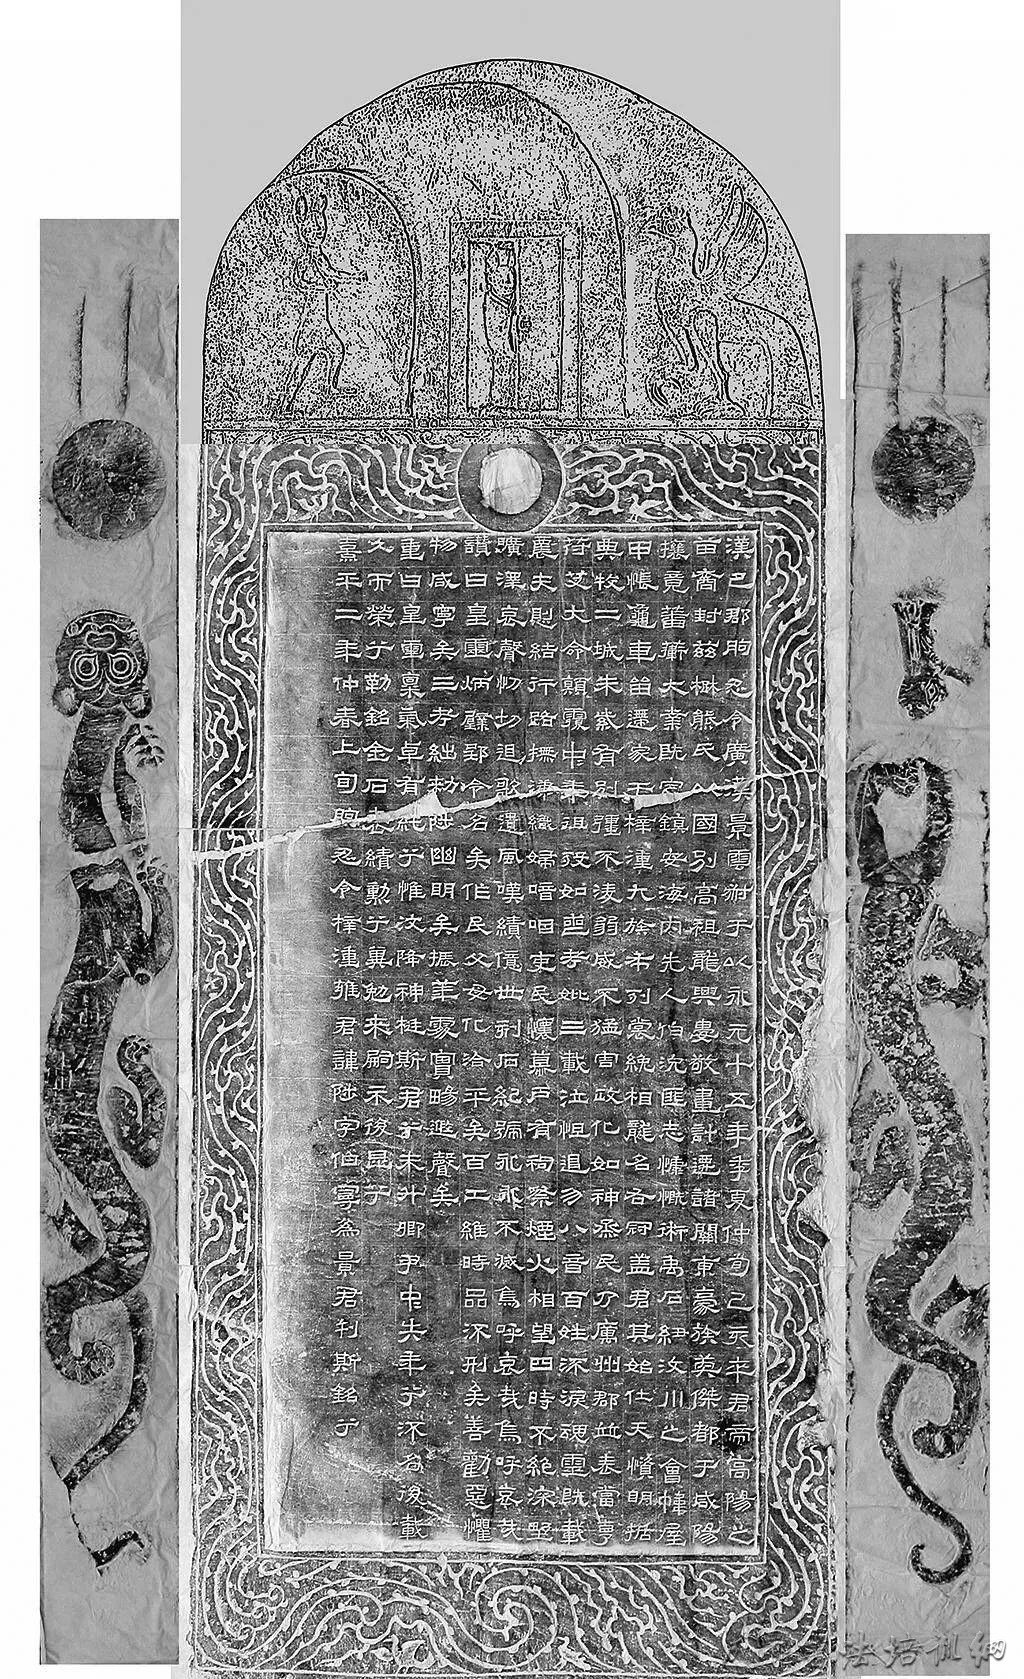 漢巴郡朐忍令廣漢景雲叔于以永元十五年季夏仲旬己亥卒君帝高陽之
苗裔封茲楚熊氏以國別高祖龍興婁敬畫計遷諸關東豪族英傑都于咸陽
攘竟蕃衛大業既定鎮安海內先人伯況匪志慷慨術禹石紐汶川之會幃屋
甲帳龜車留遰家于梓潼九族布列裳絻相襲名右冠蓋君其始仕天資明括
典牧二城朱紫有別彊不淩弱威不猛害政化如神蒸民乃厲州郡並表當亨
苻艾大命顛覆中年徂歿如喪考妣三載泣怛遏勿八音百姓流淚魂靈既載
農夫惻結行路撫涕織婦喑咽吏民懷慕戶有祠祭煙火相望四時不絕深野
曠澤哀聲忉切追歌遺風嘆績億世刻石紀號永永不滅烏呼哀哉烏呼哀哉
讚曰皇靈炳璧郢令名矣作民父母化洽平矣百工維時品流刑矣善勸惡懼
物咸寧矣三考絀敕陟幽明矣振華處實暘遐聲矣
重曰皇靈稟氣卓有純兮惟汶降神梃斯君兮未升卿尹中失年兮流名後載
久而榮兮勒銘金石表績勳兮冀勉來嗣示後昆兮
熹平二年仲春上旬朐忍令梓潼雍君諱陟字伯寧為景君刊斯銘兮
法培訓網